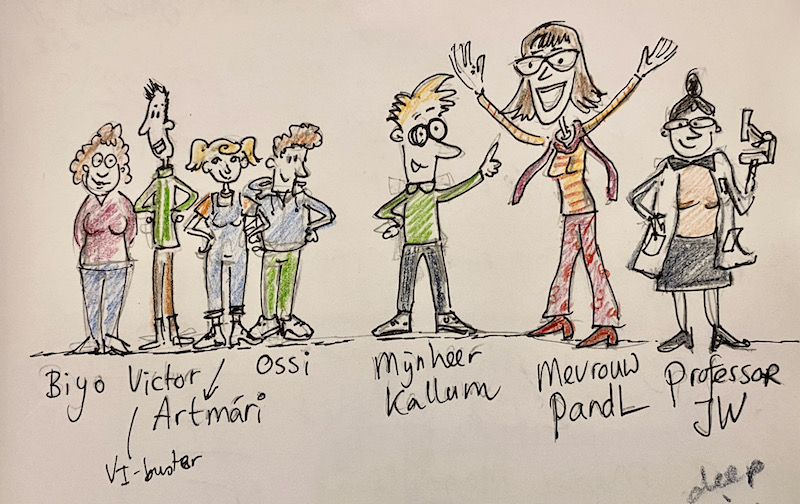 Biyo
Victor
VI-buster
Artmári
Ossi
Mijnheer
Kallum
Mevrouw
PandL
Professor
JW
deep